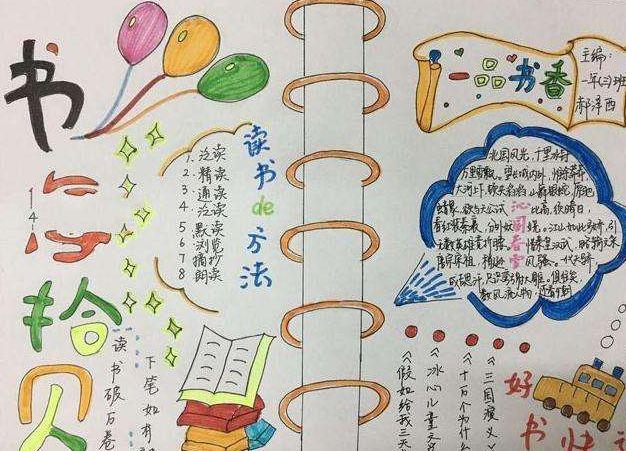 书
拾
贝
1. 泛读
2. 精读
3. 通读
4. 泛读
5 默读
6 浏览
7 摘抄
8 朗读
读书de方法
读书破万卷
下笔如有
一品书香
主编:
一年(三)班
郝泽西
北国风光,千里冰封
万里雪飘。望长城内外,惟余莽莽
大河上下,顿失滔滔。山舞银蛇,原驰
蜡象,欲与天公试比高,须晴日,
看红装素裹,分外妖娆。江山如此多娇,引
无数英雄竞折腰。惜秦皇汉武,略输文采
唐宗宋祖,稍逊风骚。一代天骄
成吉思汗,只识弯弓射大雕。俱往矣,
数风流人物,还看今朝
沁园春雪
《三国演义》
《十万个为什么
《冰心儿童文
《假如给我三天
好书快